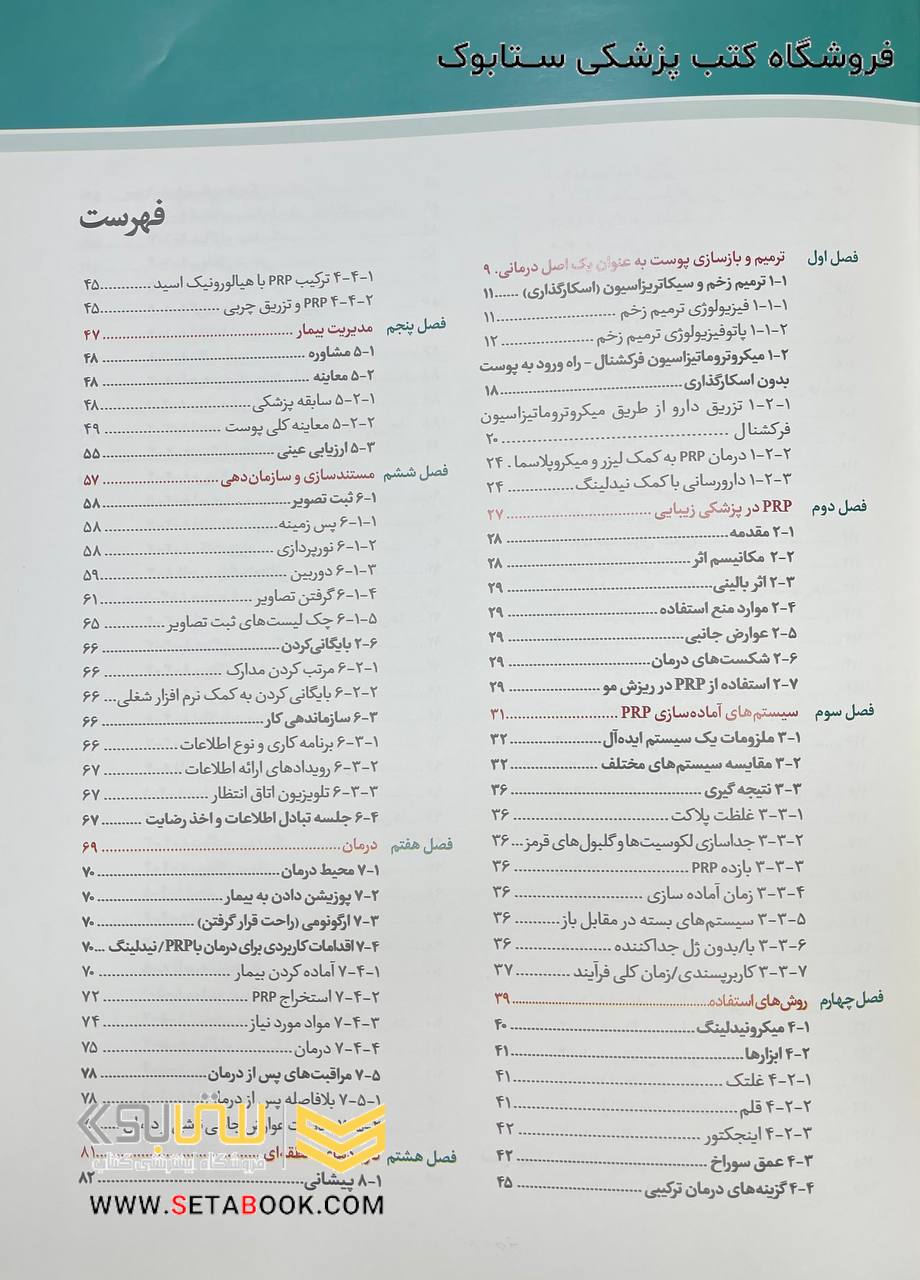 فروشگاه کتب پزشکی ستابوک
فهرست
فصل اول ترمیم و بازسازی پوست به عنوان یک اصل درمانی. ۹
۱-۱ ترمیم زخم و سیکاتریزاسیون (اسکارگذاری) ......۱۱
۱-۱-۱ فیزیولوژی ترمیم زخم ........................ ۱۱
۱-۱-۲ پاتوفیزیولوژی ترمیم زخم ...................... ۱۲
۱-۲ میکروتروماتیزاسیون فرکشنال – راه ورود به پوست
بدون اسکارگذاری ........................................۱۸
۱-۲-۱ تزریق دارو از طریق میکروتروماتیزاسیون
فرکشنال ............................................ ۲۰
۱-۲-۲ درمان PRP به کمک لیزر و میکروپلاسما . ۲۴
۱-۲-۳ دارورسانی با کمک نیدلینگ ............... ۲۴
فصل دوم PRP در پزشکی زیبایی ............................ ۲۷
۲-۱ مقدمه .............................................. ۲۸
۲-۲ مکانیسم اثر ...................................... ۲۸
۲-۳ اثر بالینی ......................................... ۲۹
۲-۴ موارد منع استفاده ............................... ۲۹
۲-۵ عوارض جانبی .................................... ۲۹
۲-۶ شکست‌های درمان .............................. ۲۹
۲-۷ استفاده از PRP در ریزش مو .................... ۲۹
فصل سوم سیستم‌های آماده‌سازی PRP ........................۳۱
۳-۱ ملزومات یک سیستم ایده‌آل .................... ۳۲
۳-۲ مقایسه سیستم‌های مختلف .................... ۳۲
۳-۳ نتیجه گیری ...................................... ۳۶
۳-۳-۱ غلظت پلاکت .................................. ۳۶
۳-۳-۲ جداسازی لکوسیت‌ها و گلبول‌های قرمز ... ۳۶
۳-۳-۳ بازده PRP ...................................... ۳۶
۳-۳-۴ زمان آماده سازی ............................. ۳۶
۳-۳-۵ سیستم‌های بسته در مقابل باز .......... ۳۶
۳-۳-۶ با/بدون ژل جداکننده ..................... ۳۶
۳-۳-۷ کاربرپسندی/زمان کلی فرآیند ............ ۳۷
فصل چهارم روش‌های استفاده ........................................ ۳۹
۴-۱ میکرونیدلینگ .................................... ۴۰
۴-۲ ابزارها .............................................. ۴۱
۴-۲-۱ غلتک .......................................... ۴۱
۴-۲-۲ قلم ............................................ ۴۱
۴-۲-۳ اینجکتور ...................................... ۴۲
۴-۳ عمق سوراخ ...................................... ۴۲
۴-۴ گزینه‌های درمان ترکیبی ........................ ۴۵
۴-۴-۱ ترکیب PRP با هیالورونیک اسید ............۴۵
۴-۴-۲ PRP و تزریق چربی ............................۴۵
فصل پنجم مدیریت بیمار ........................................ ۴۷
۵-۱ مشاوره ............................................ ۴۸
۵-۲ معاینه ............................................. ۴۸
۵-۲-۱ سابقه پزشکی ................................۴۸
۵-۲-۲ معاینه کلی پوست ........................... ۴۹
۵-۳ ارزیابی عینی ..................................... ۵۵
فصل ششم مستندسازی و سازمان‌دهی ........................ ۵۷
۶-۱ ثبت تصویر ....................................... ۵۸
۶-۱-۱ پس زمینه .................................... ۵۸
۶-۱-۲ نورپردازی .................................... ۵۸
۶-۱-۳ دوربین ........................................۵۹
۶-۱-۴ گرفتن تصاویر ................................ ۶۱
۶-۱-۵ چک لیست‌های ثبت تصاویر ............. ۶۵
۲-۶ بایگانی‌کردن ..................................... ۶۶
۶-۲-۱ مرتب کردن مدارک ......................... ۶۶
۶-۲-۲ بایگانی کردن به کمک نرم افزار شغلی ... ۶۶
۶-۳ سازماندهی کار ................................... ۶۶
۶-۳-۱ برنامه کاری و نوع اطلاعات ................ ۶۶
۶-۳-۲ رویدادهای ارائه اطلاعات .................. ۶۷
۶-۳-۳ تلویزیون اتاق انتظار ....................... ۶۷
۶-۴ جلسه تبادل اطلاعات و اخذ رضایت .......... ۶۷
فصل هفتم درمان .................................................. ۶۹
۷-۱ محیط درمان ..................................... ۷۰
۷-۲ پوزیشن دادن به بیمار .......................... ۷۰
۷-۳ ارگونومی (راحت قرار گرفتن) ................... ۷۰
۷-۴ اقدامات کاربردی برای درمان با PRP/ نیدلینگ ...۷۰
۷-۴-۱ آماده کردن بیمار ............................ ۷۰
۷-۴-۲ استخراج PRP ................................ ۷۲
۷-۴-۳ مواد مورد نیاز ................................ ۷۴
۷-۴-۴ درمان .......................................... ۷۵
۷-۵ مراقبت‌های پس از درمان ....................... ۷۸
۷-۵-۱ بلافاصله پس از درمان ..................... ۷۸
فصل هشتم ........ ۸۱
۸-۱ پیشانی ............................................ ۸۲
ستابوک
فروشگاه اینترنتی کتاب
WWW.SETABOOK.COM